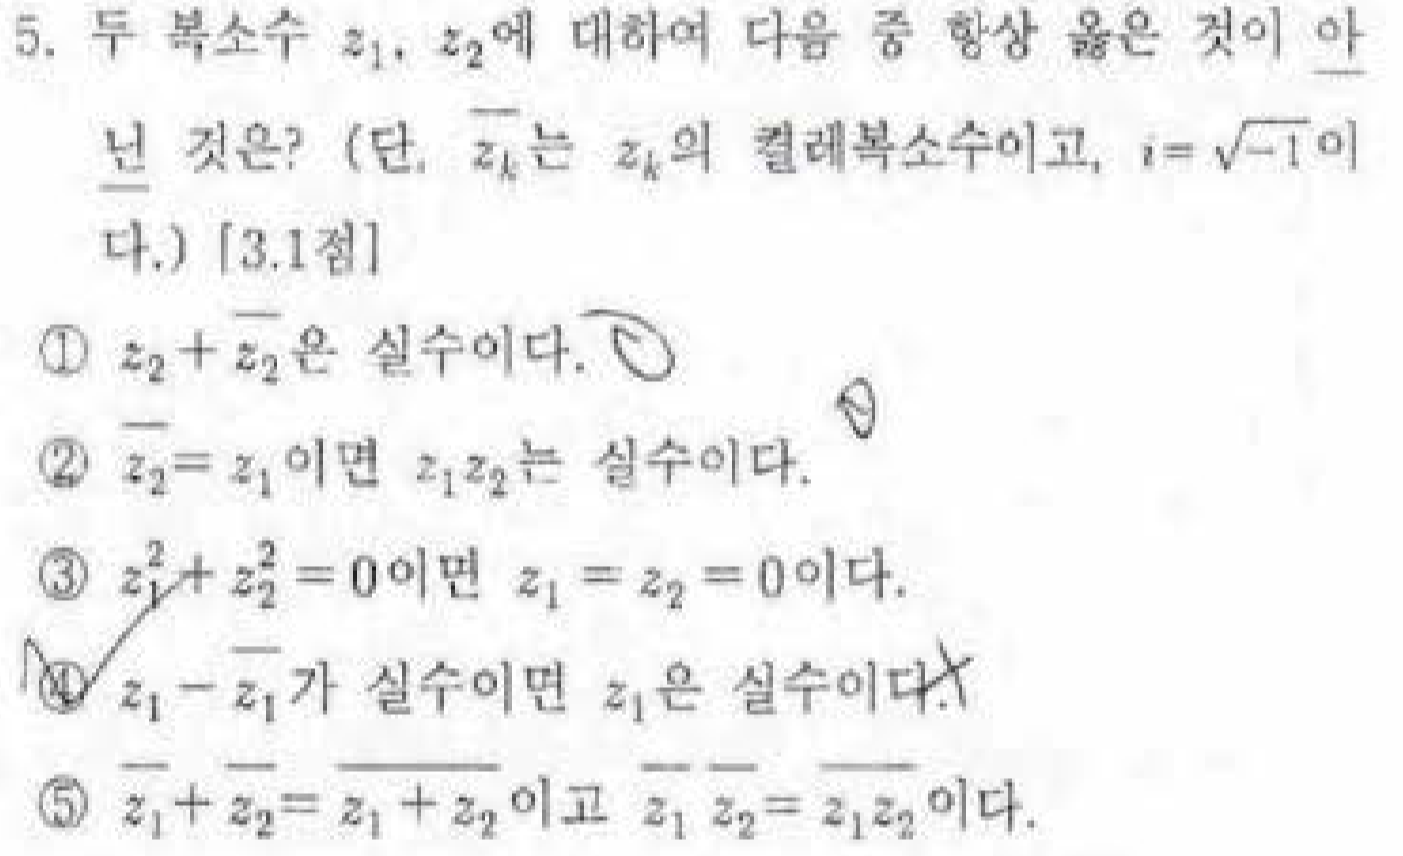 5. 두 복소수 z₁, z₂에 대하여 다음 중 항상 옳은 것이 아
닌 것은? (단, z̅ₖ는 zₖ의 켤레복소수이고, i=√-1이
다.) [3.1점]
① z₂+z̅₂은 실수이다.
② z̅₂=z₁이면 z₁z₂는 실수이다.
③ z₁²+z₂²=0이면 z₁=z₂=0이다.
④ z₁-z̅₁가 실수이면 z₁은 실수이다.
⑤ z̅₁+z̅₂=\overline{z₁+z₂}이고 z̅₁ z̅₂=\overline{z₁z₂}이다.